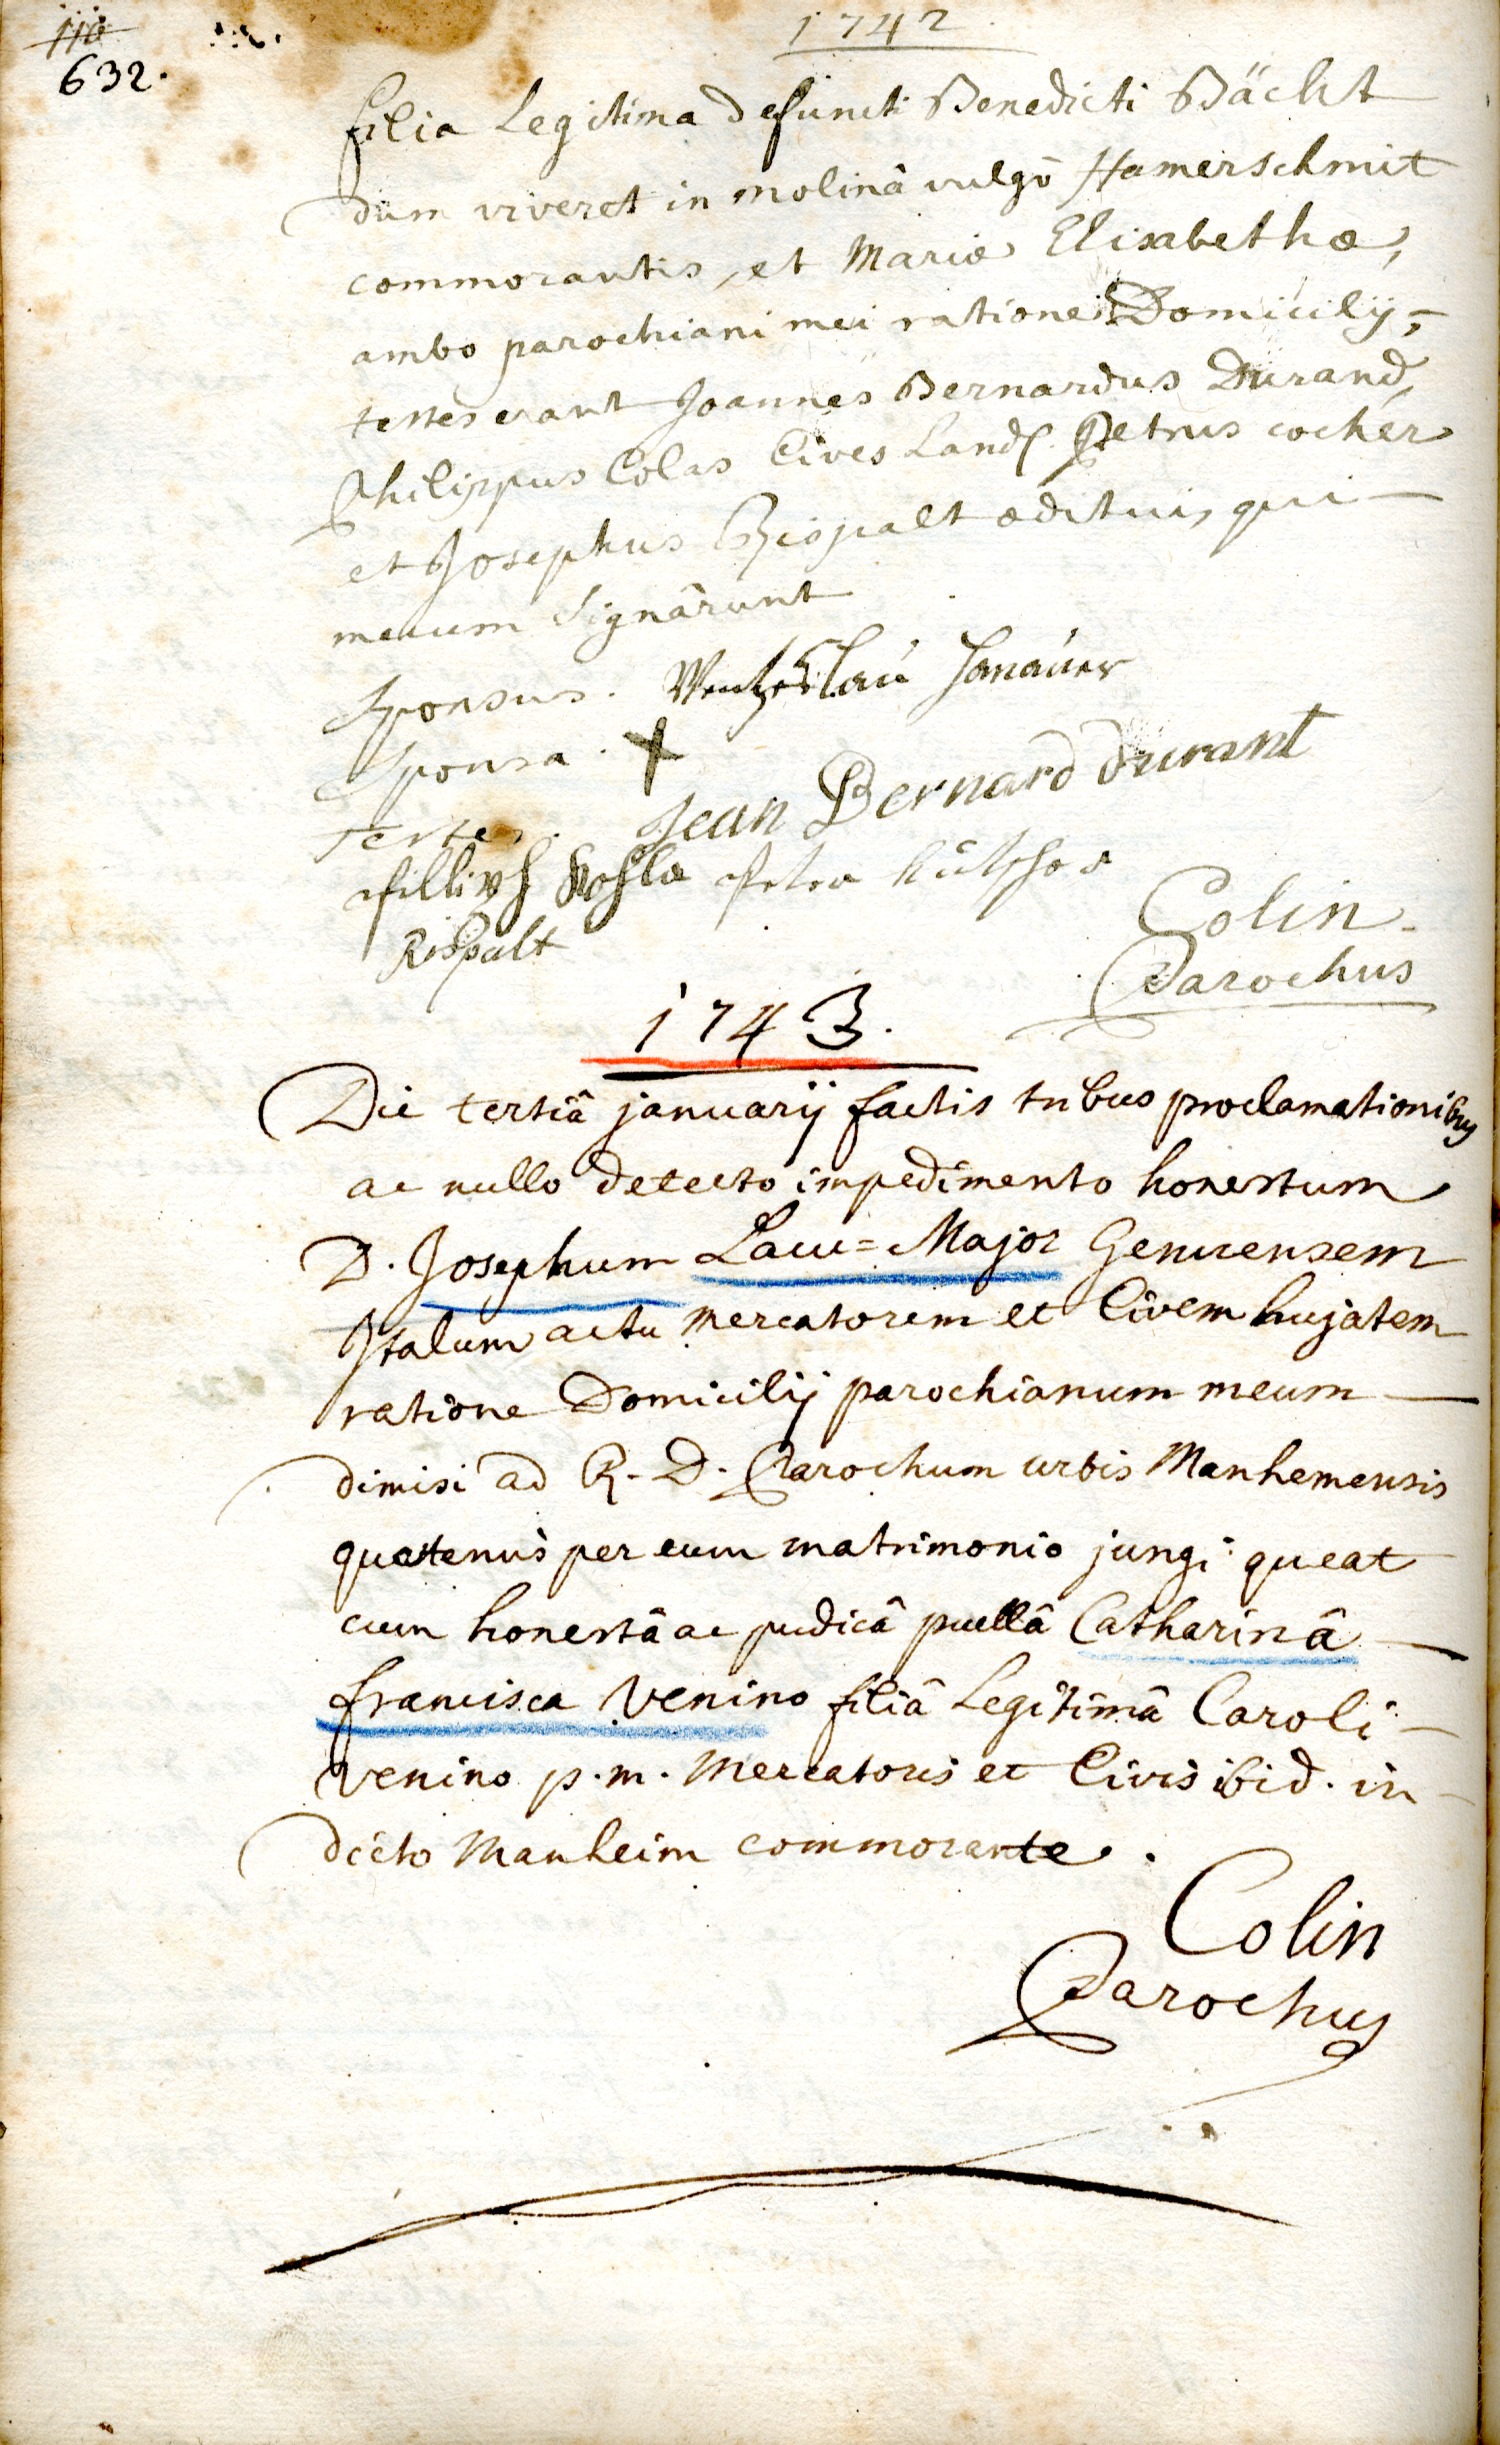 110
632.
1742
filia Legitima defuncti Benedicti Bächt
dum viveret in molinâ vulgô Hamerschmit
commorantis, et Mariæ Elisabethæ,
ambo parochiani mei ratione Domicilij,
testes erant Joannes Bernardus Durand,
Philippus Colas Cives Land. Petrus cocher
et Josephus Rispalt æditui, qui
mecum Signârunt
Sponsus. Wentzeslau Hanauer
Sponsa. X
Testes. Jean Bernard Durant
fillips Kohla Peter Kutscher
Rispalt
Colin
Parochus
1743.
Die tertiâ januarij factis tribus proclamationibus
ac nullo detecto impedimento honestum
D. Josephum Lacu=Major Genuensem
Italum actu mercatorem et Civem hujatem
ratione Domicilij parochianum meum
dimisi ad R. D. Parochum urbis Manhemensis
quatenus per eum matrimonio jungi queat
cum honestâ ac pudicâ puellâ Catharinâ
francisca Venino filiâ Legitimâ Caroli
Venino p. m. Mercatoris et Civis ibid. in
dicto Manheim commorante.
Colin
Parochus